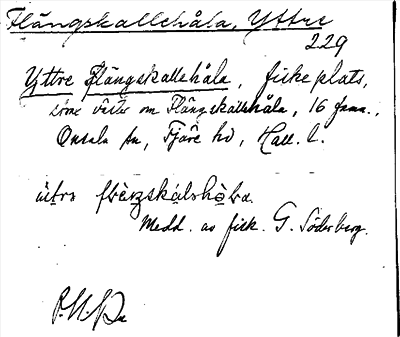 Flängskallehåla, Yttre
229
Yttre Flängskallehåla, fiskeplats,
väster om Flängskallehåla, 16 famn.,
Onsala sn, Fjäre hd, Hall. l.
Medd. av fisk. G. Söderberg.